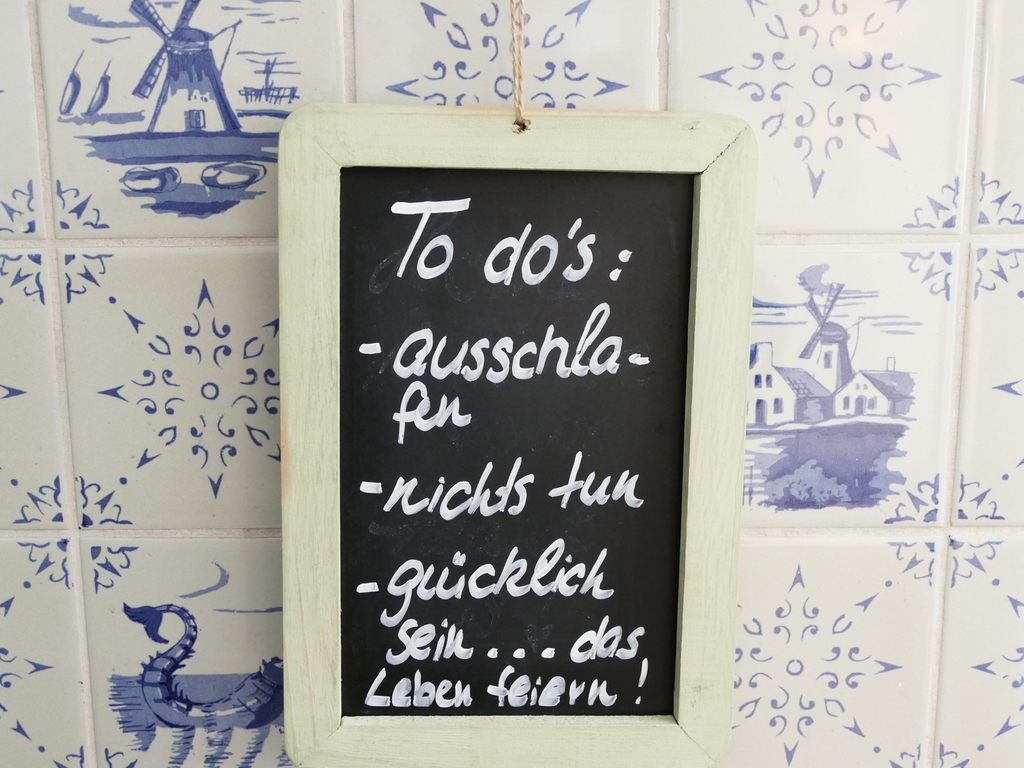 To do's:
- ausschla-
fen
- nichts tun
- gücklich
sein... das
Leben feiern!